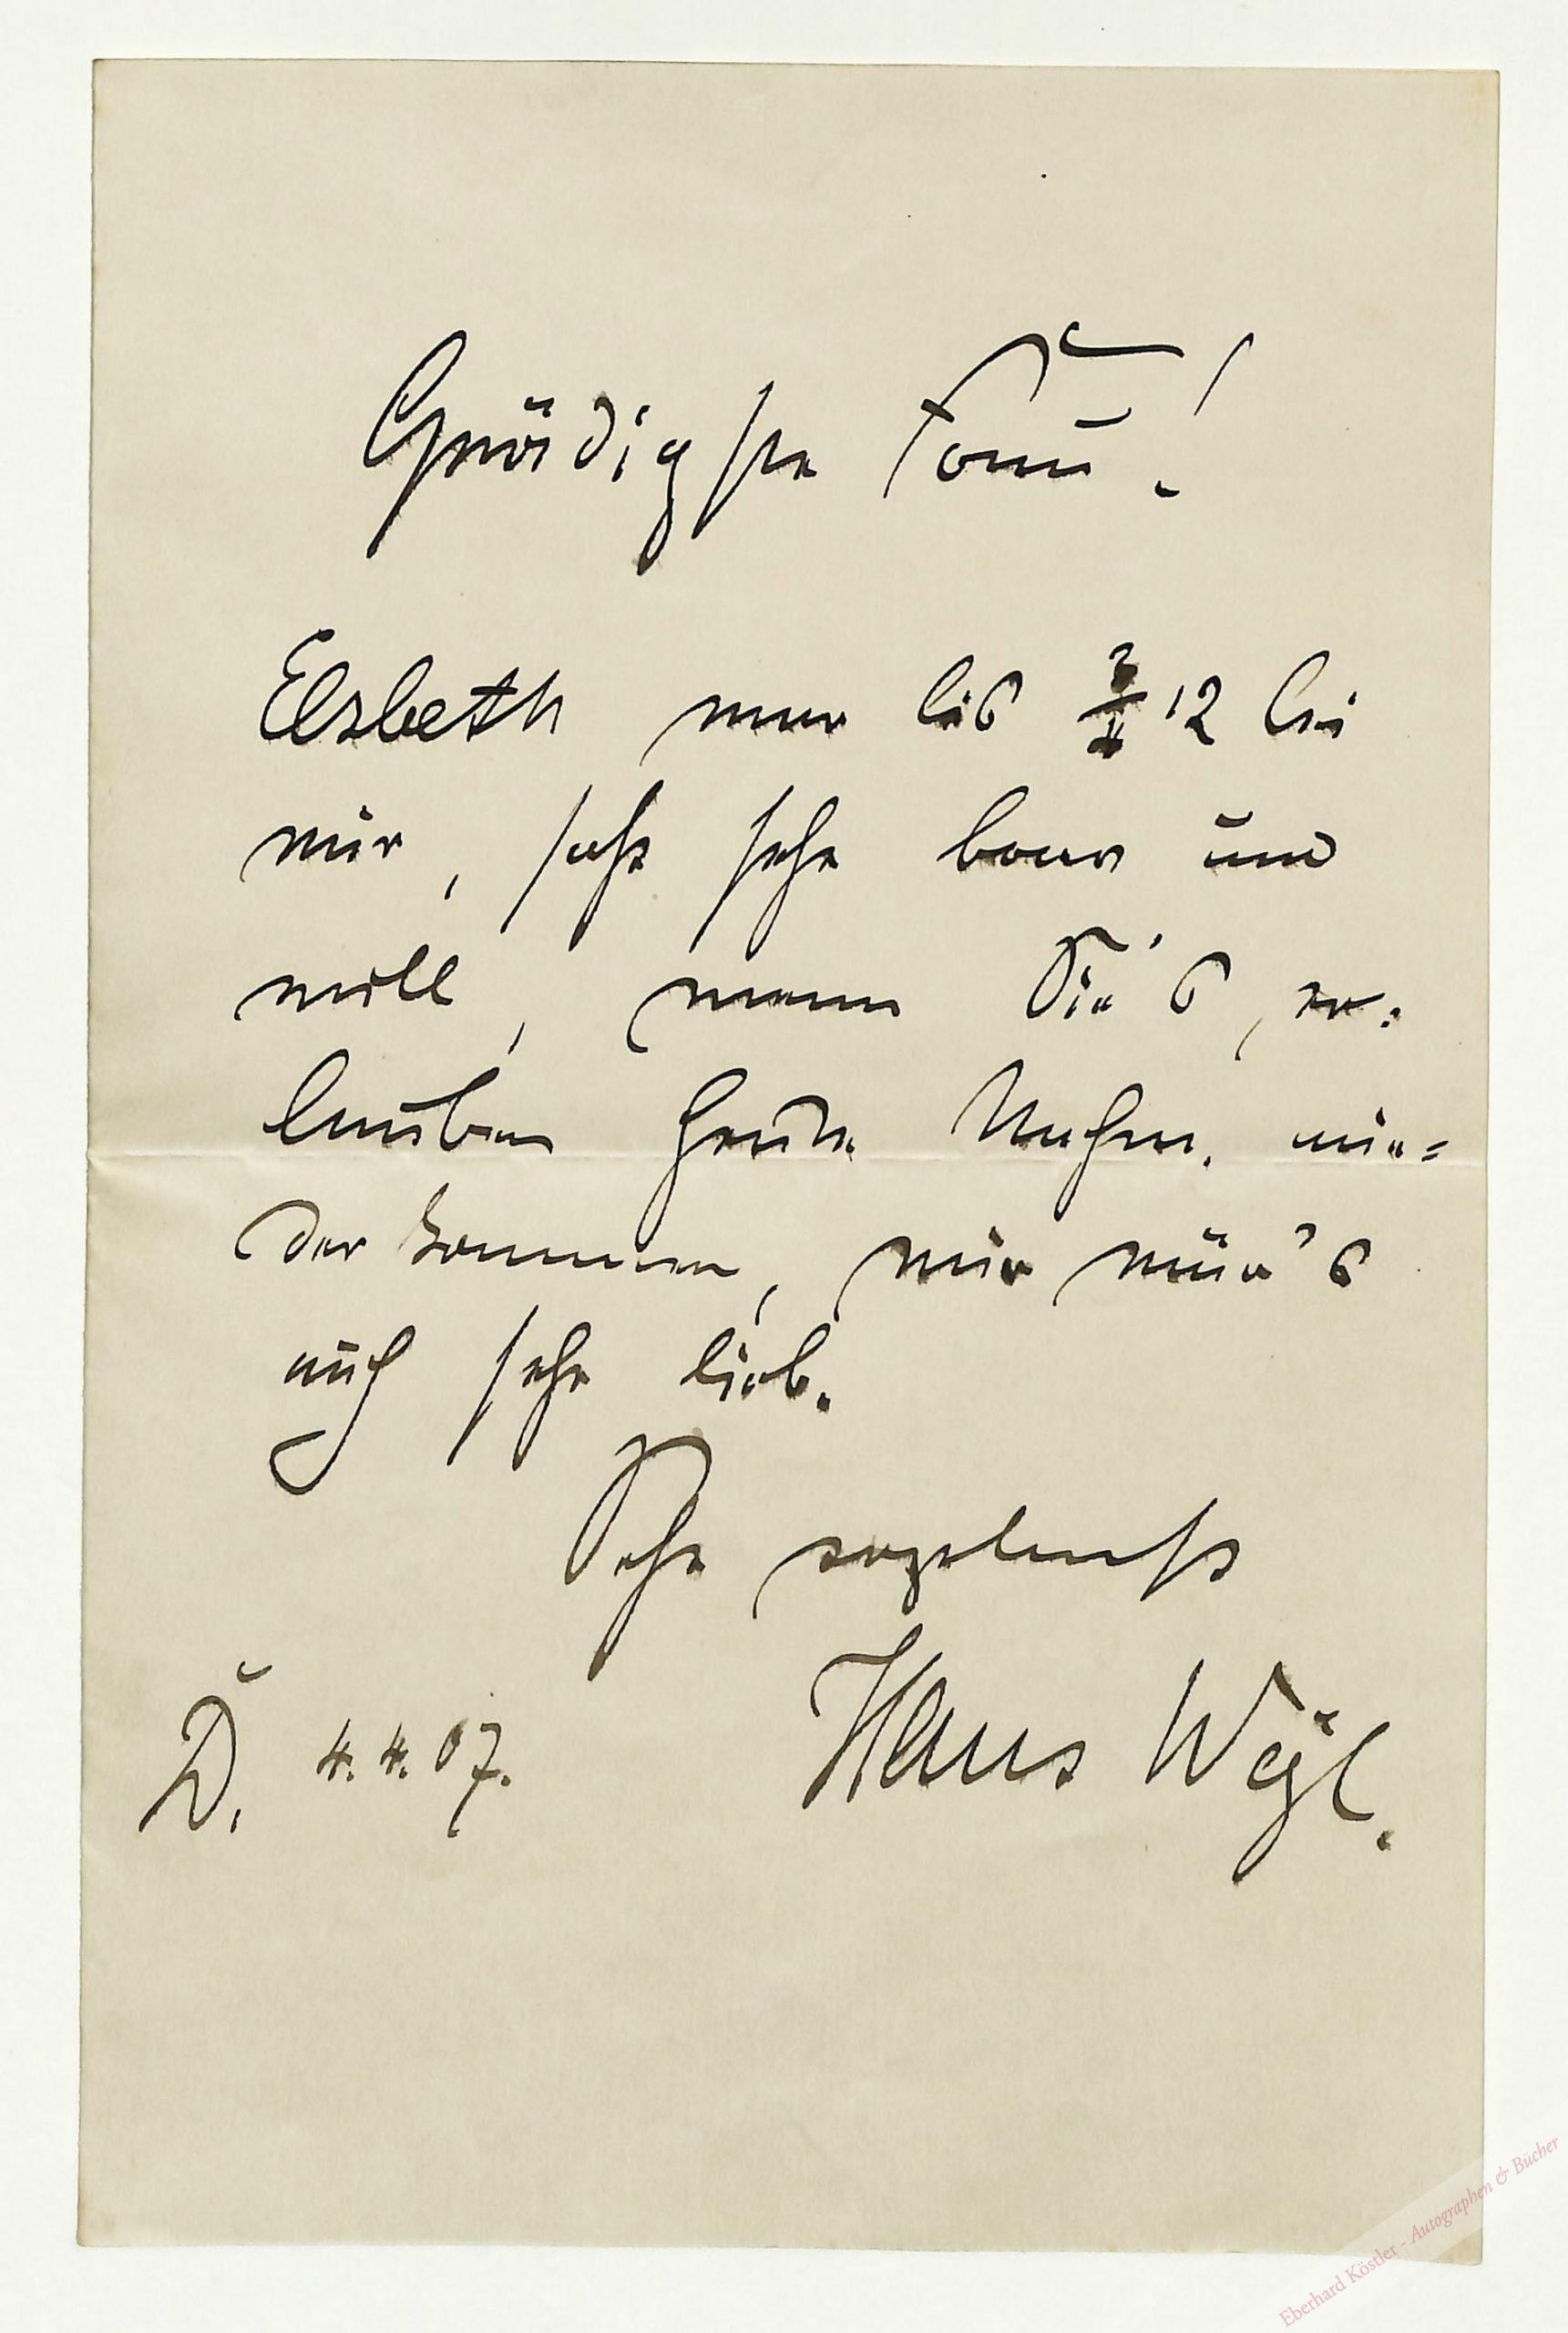 Gnädigste Frau!
Elsbeth war bis 3/4 12 bei
mir, saß sehr brav und
will, wenn Sie's er=
lauben heute Nachm. wie=
der kommen, mir wär's
auch sehr lieb.
Sehr ergebenst
Hans Wgl.
D. 4.4.07.
Eberhard Köstler - Autographen & Bücher